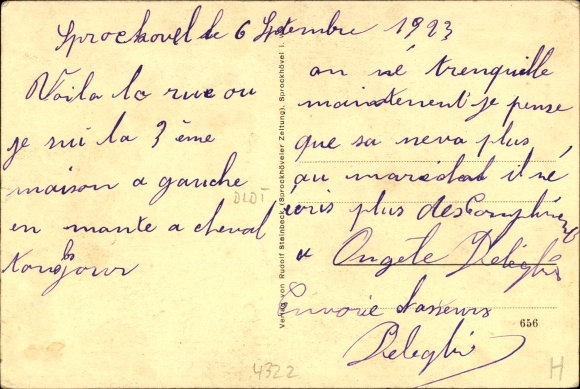 Sprockovel le 6 Setembre 1923
Voila la rue ou
je sui la 3 ème
maison a gauche
en mante a cheval
Bonjour
on né trenquille
maintenent je pense
que sa neva plus
au maréchal il né
cris plus des
Ongéle
Deleghi
Verlag von Rudolf Steinbeck (Sprockhöveler Zeitung), Sprockhövel i. W.
DLDT
656
4322
H